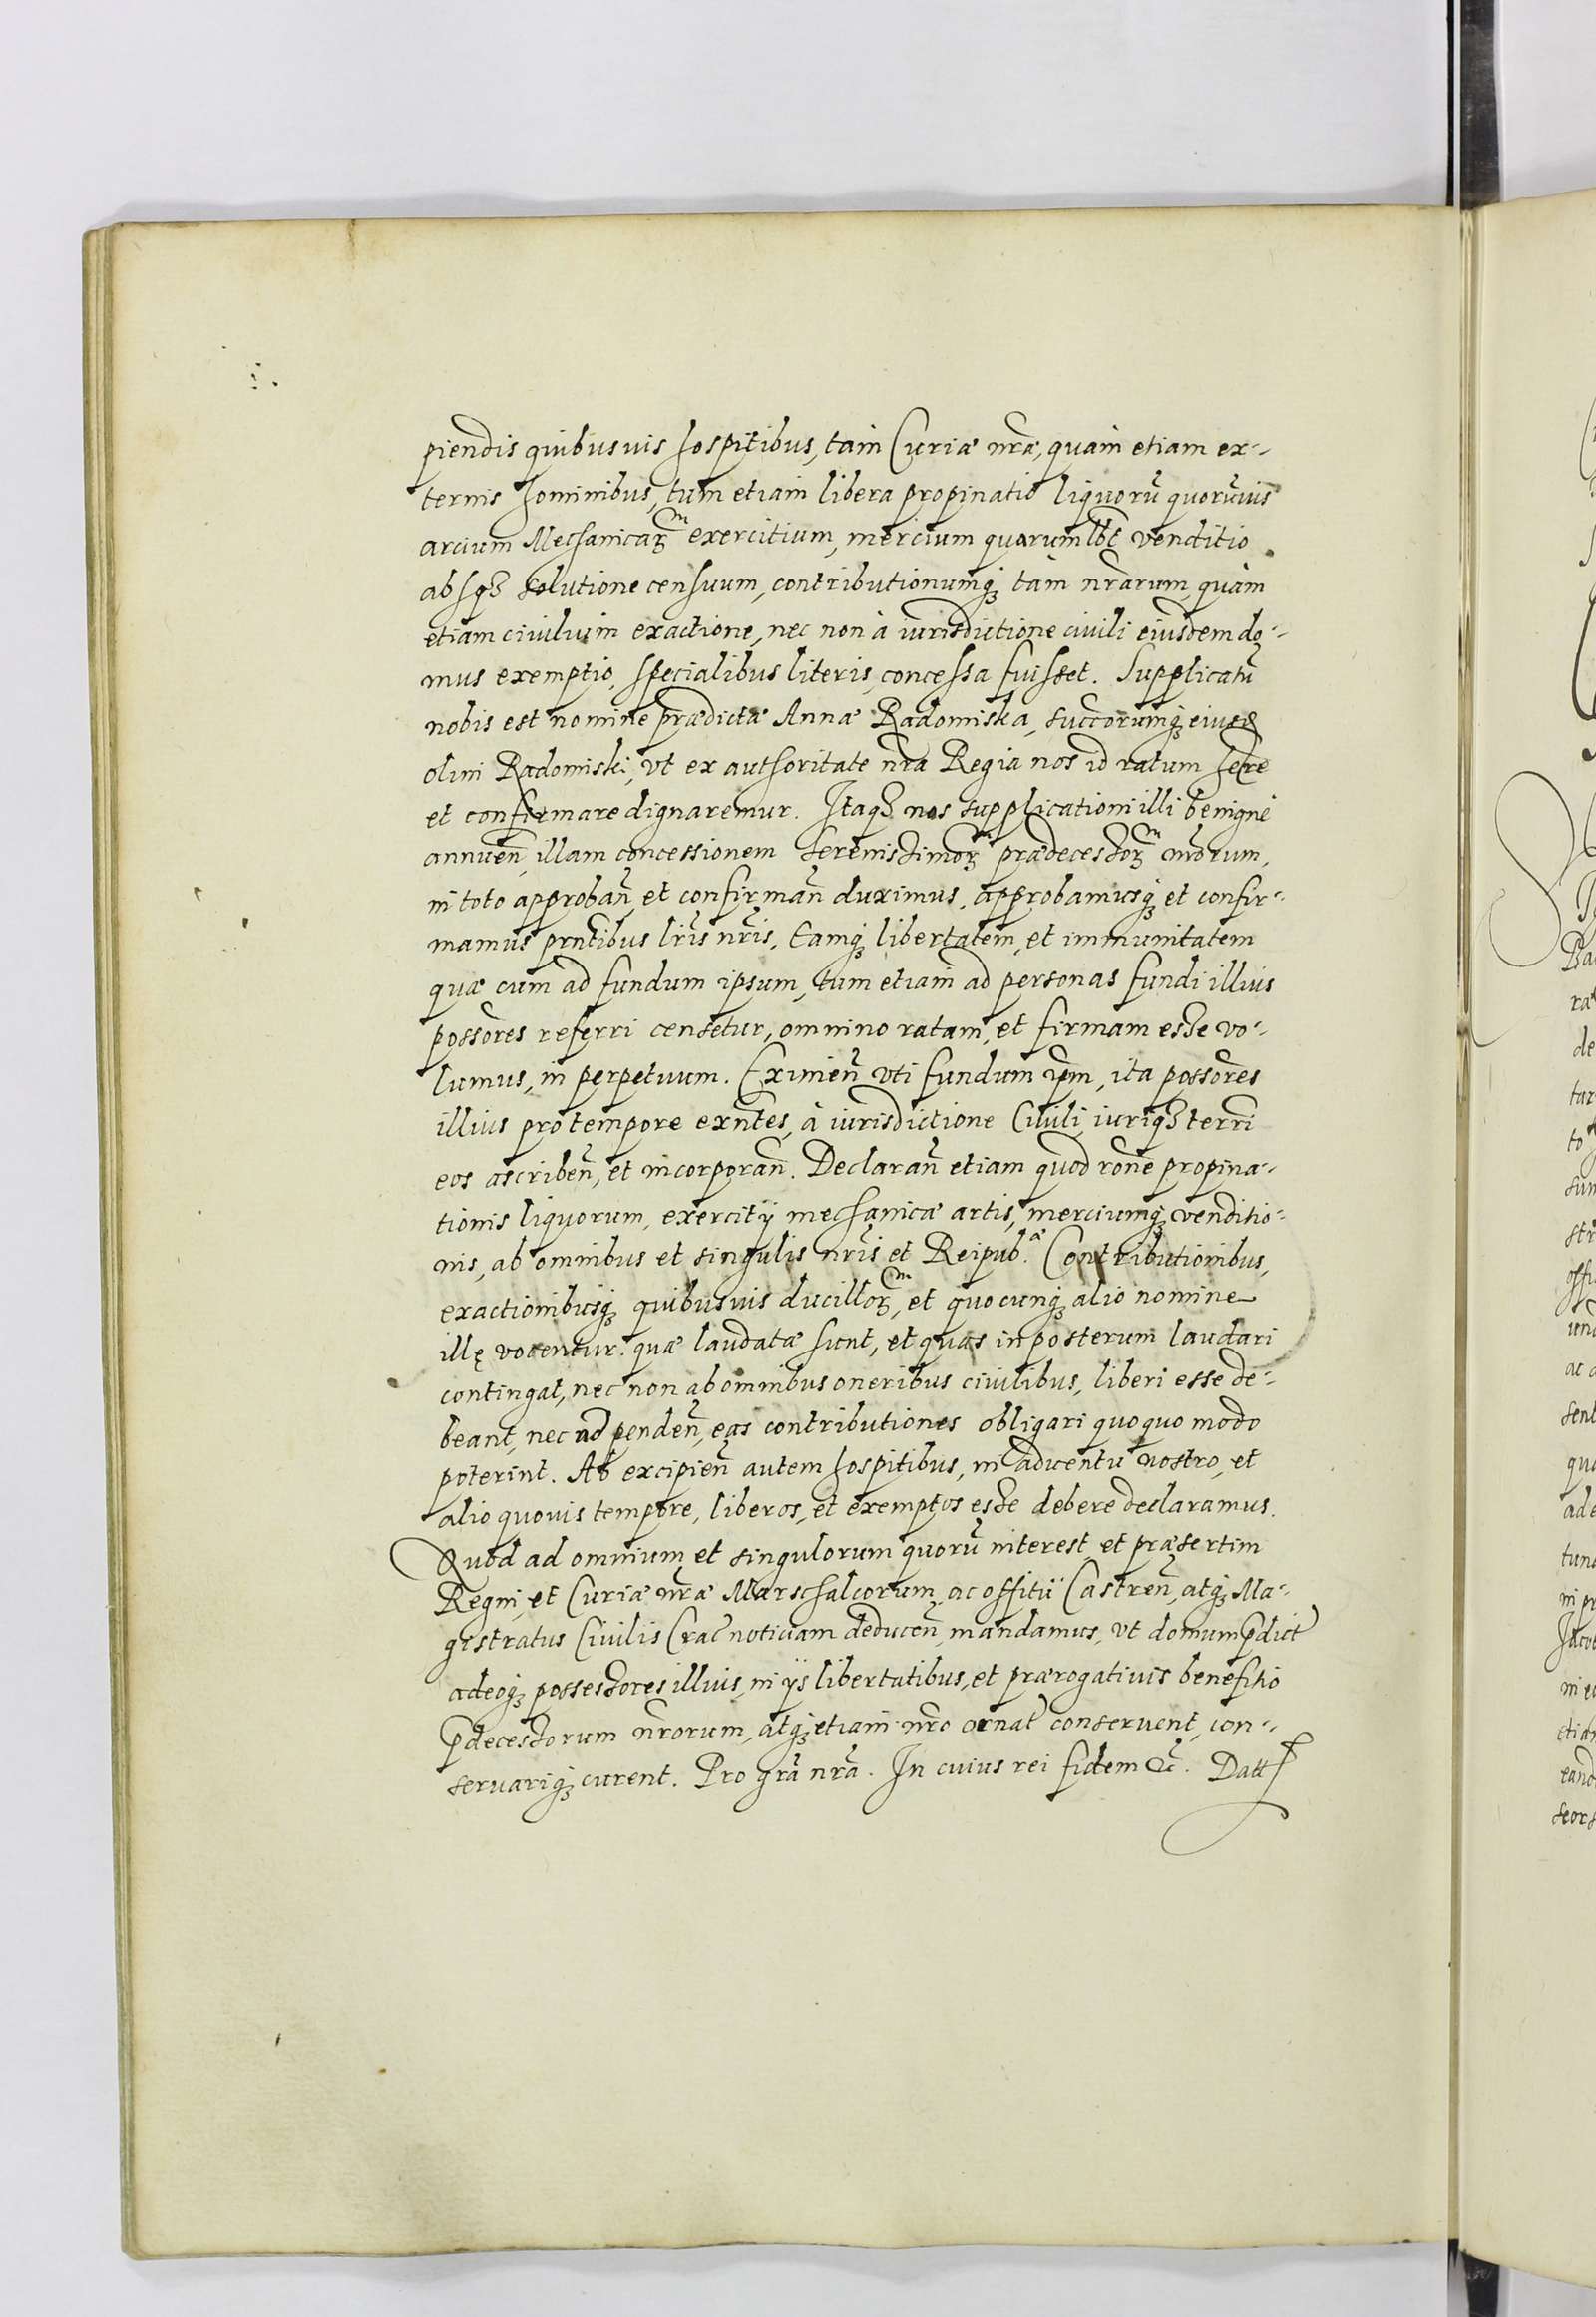 piendis quibusuis hospitibus, tam Curiæ nr̃æ, quam etiam ex-
ternis hominibus, tum etiam libera propinatio liquorũ quorũuis
arcium Mechanicarꝫ exercitium, mercium quarumlbt venditio
absqꝫ solutione censuum, contributionumqꝫ tàm nr̃arum, quàm
etiam ciuilium exactione, nec non à iurisdictione ciuili eiusdem do-
mus exemptio, specialibus literis, concessa fuisset. Supplicatũ
nobis est nomine prædictæ Annæ Radomiska, succorumqꝫ eiusd
olim Radomiski, vt ex authoritate nr̃a Regia nos id ratum here
et confirmare dignaremur. Itaqꝫ nos supplicationi illi benignè
annuen̄, illam concessionem Serenissimorꝫ prædecessorꝫ nr̃orum,
in toto approban̄, et confirman̄ duximus, approbamusqꝫ et confir-
mamus prñtibus lr̃is nr̃is, Eamqꝫ libertatem, et immunitatem
quæ cum ad fundum ipsum, tum etiam ad personas fundi illius
possores referri censetur, omnino ratam, et firmam esse vo-
lumus, in perpetuum. Eximen̄ vti fundum ip̄m, ita possores
illius pro tempore exñtes, à iurisdictione Ciuili, iuriqꝫ terri
eos ascriben̄, et incorporan̄. Declaran̄ etiam quod rõne propina-
tionis liquorum, exercitÿ mechanicæ artis, merciumqꝫ venditio-
nis, ab omnibus et singulis nr̃is et Reipub.æ Contributionibus,
exactionibusqꝫ quibusuis ducillorꝫ, et quocunqꝫ alio nomine
illę vocentur. quæ laudatæ sunt, et quas in posterum laudari
contingat, nec non ab omnibus oneribus ciuilibus, liberi esse de-
beant, nec ad penden̄, eas contributiones obligari quoquo modo
poterint. Ab excipien̄ autem hospitibus, in aduentu nostro, et
alio quouis tempore, liberos, et exemptos esse debere declaramus.
Quod ad omnium et singulorum quorũ interest, et præsertim
Regni, et Curiæ nr̃æ Marschalcorum, ac offitii Castren̄, atqꝫ Ma-
gistratus Ciuilis Crac̄ notitiam deducen̄, mandamus, vt domum p̄dict
adeoqꝫ possessores illius, in ÿs libertatibus, et prærogatiuis benefitio
p̄decessorum nr̃orum, atqꝫ etiam nr̃o ornat conseruent, con-
seruariqꝫ curent. Pro gr̃a nr̃a. In cuius rei fidem &c̄. Datt